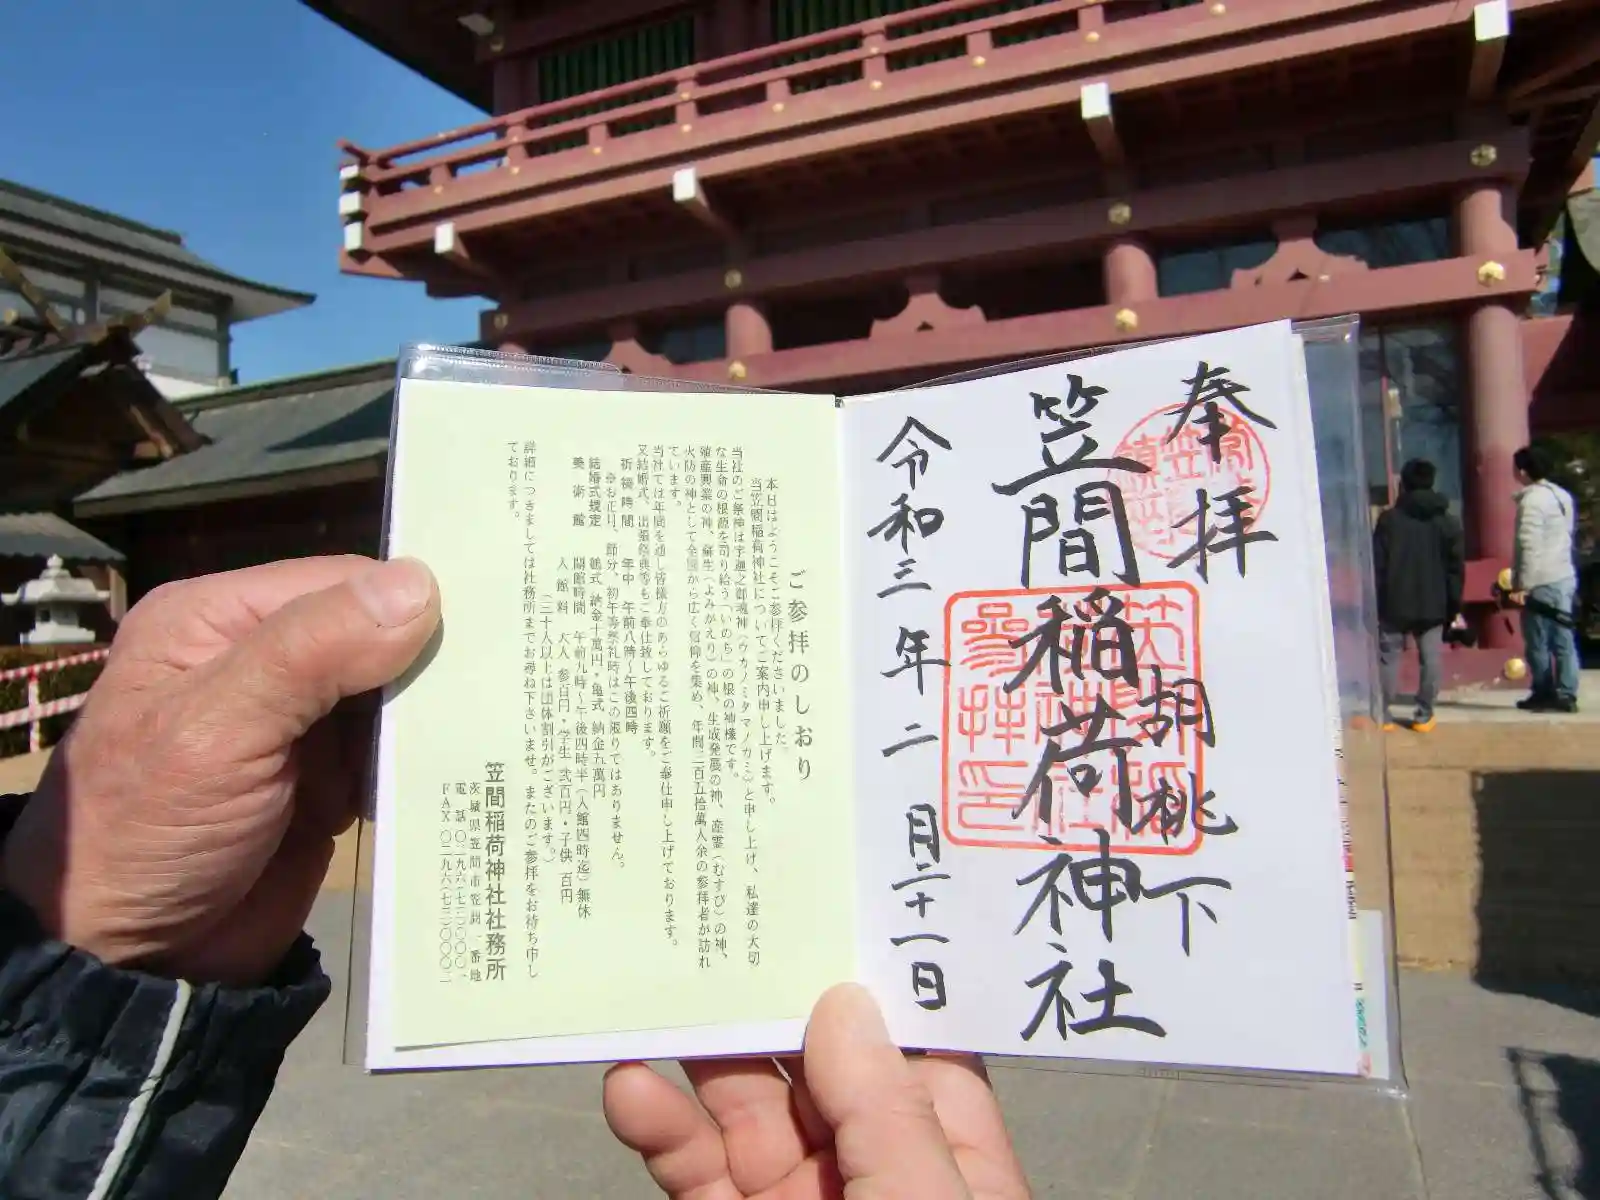 奉拝
笠間稲荷神社
胡桃下
令和三年二月二十一日
ご参拝のしおり
本日はようこそご参拝くださいました。
当笠間稲荷神社についてご案内申し上げます。
当社のご祭神は宇迦之御魂神(ウカノミタマノカミ)と申し上げ、私達の大切
な生命の根源を司り給う「いのち」の根の神様です。
殖産興業の神、蘇生(よみがえり)の神、生成発展の神、産霊(むすび)の神、
火防の神として全国から広く信仰を集め、年間三百五拾萬人余の参拝者が訪れ
ています。
当社では年間を通し皆様方のあらゆるご祈願をご奉仕申し上げております。
又結婚式、出張祭典等もご奉仕致しております。
祈祷時間 年中 午前八時~午後四時
※お正月、節分、初午等祭礼時はこの限りではありません。
結婚式規定 鶴式 納金十萬円・亀式 納金五萬円
美術館 開館時間 午前九時~午後四時半(入館四時迄)無休
入館料 大人 参百円・学生 弐百円・子供 百円
(三十人以上は団体割引がございます。)
詳細につきましては社務所までお尋ね下さいませ。またのご参拝をお待ち申し
ております。
笠間稲荷神社社務所
茨城県笠間市笠間一番地